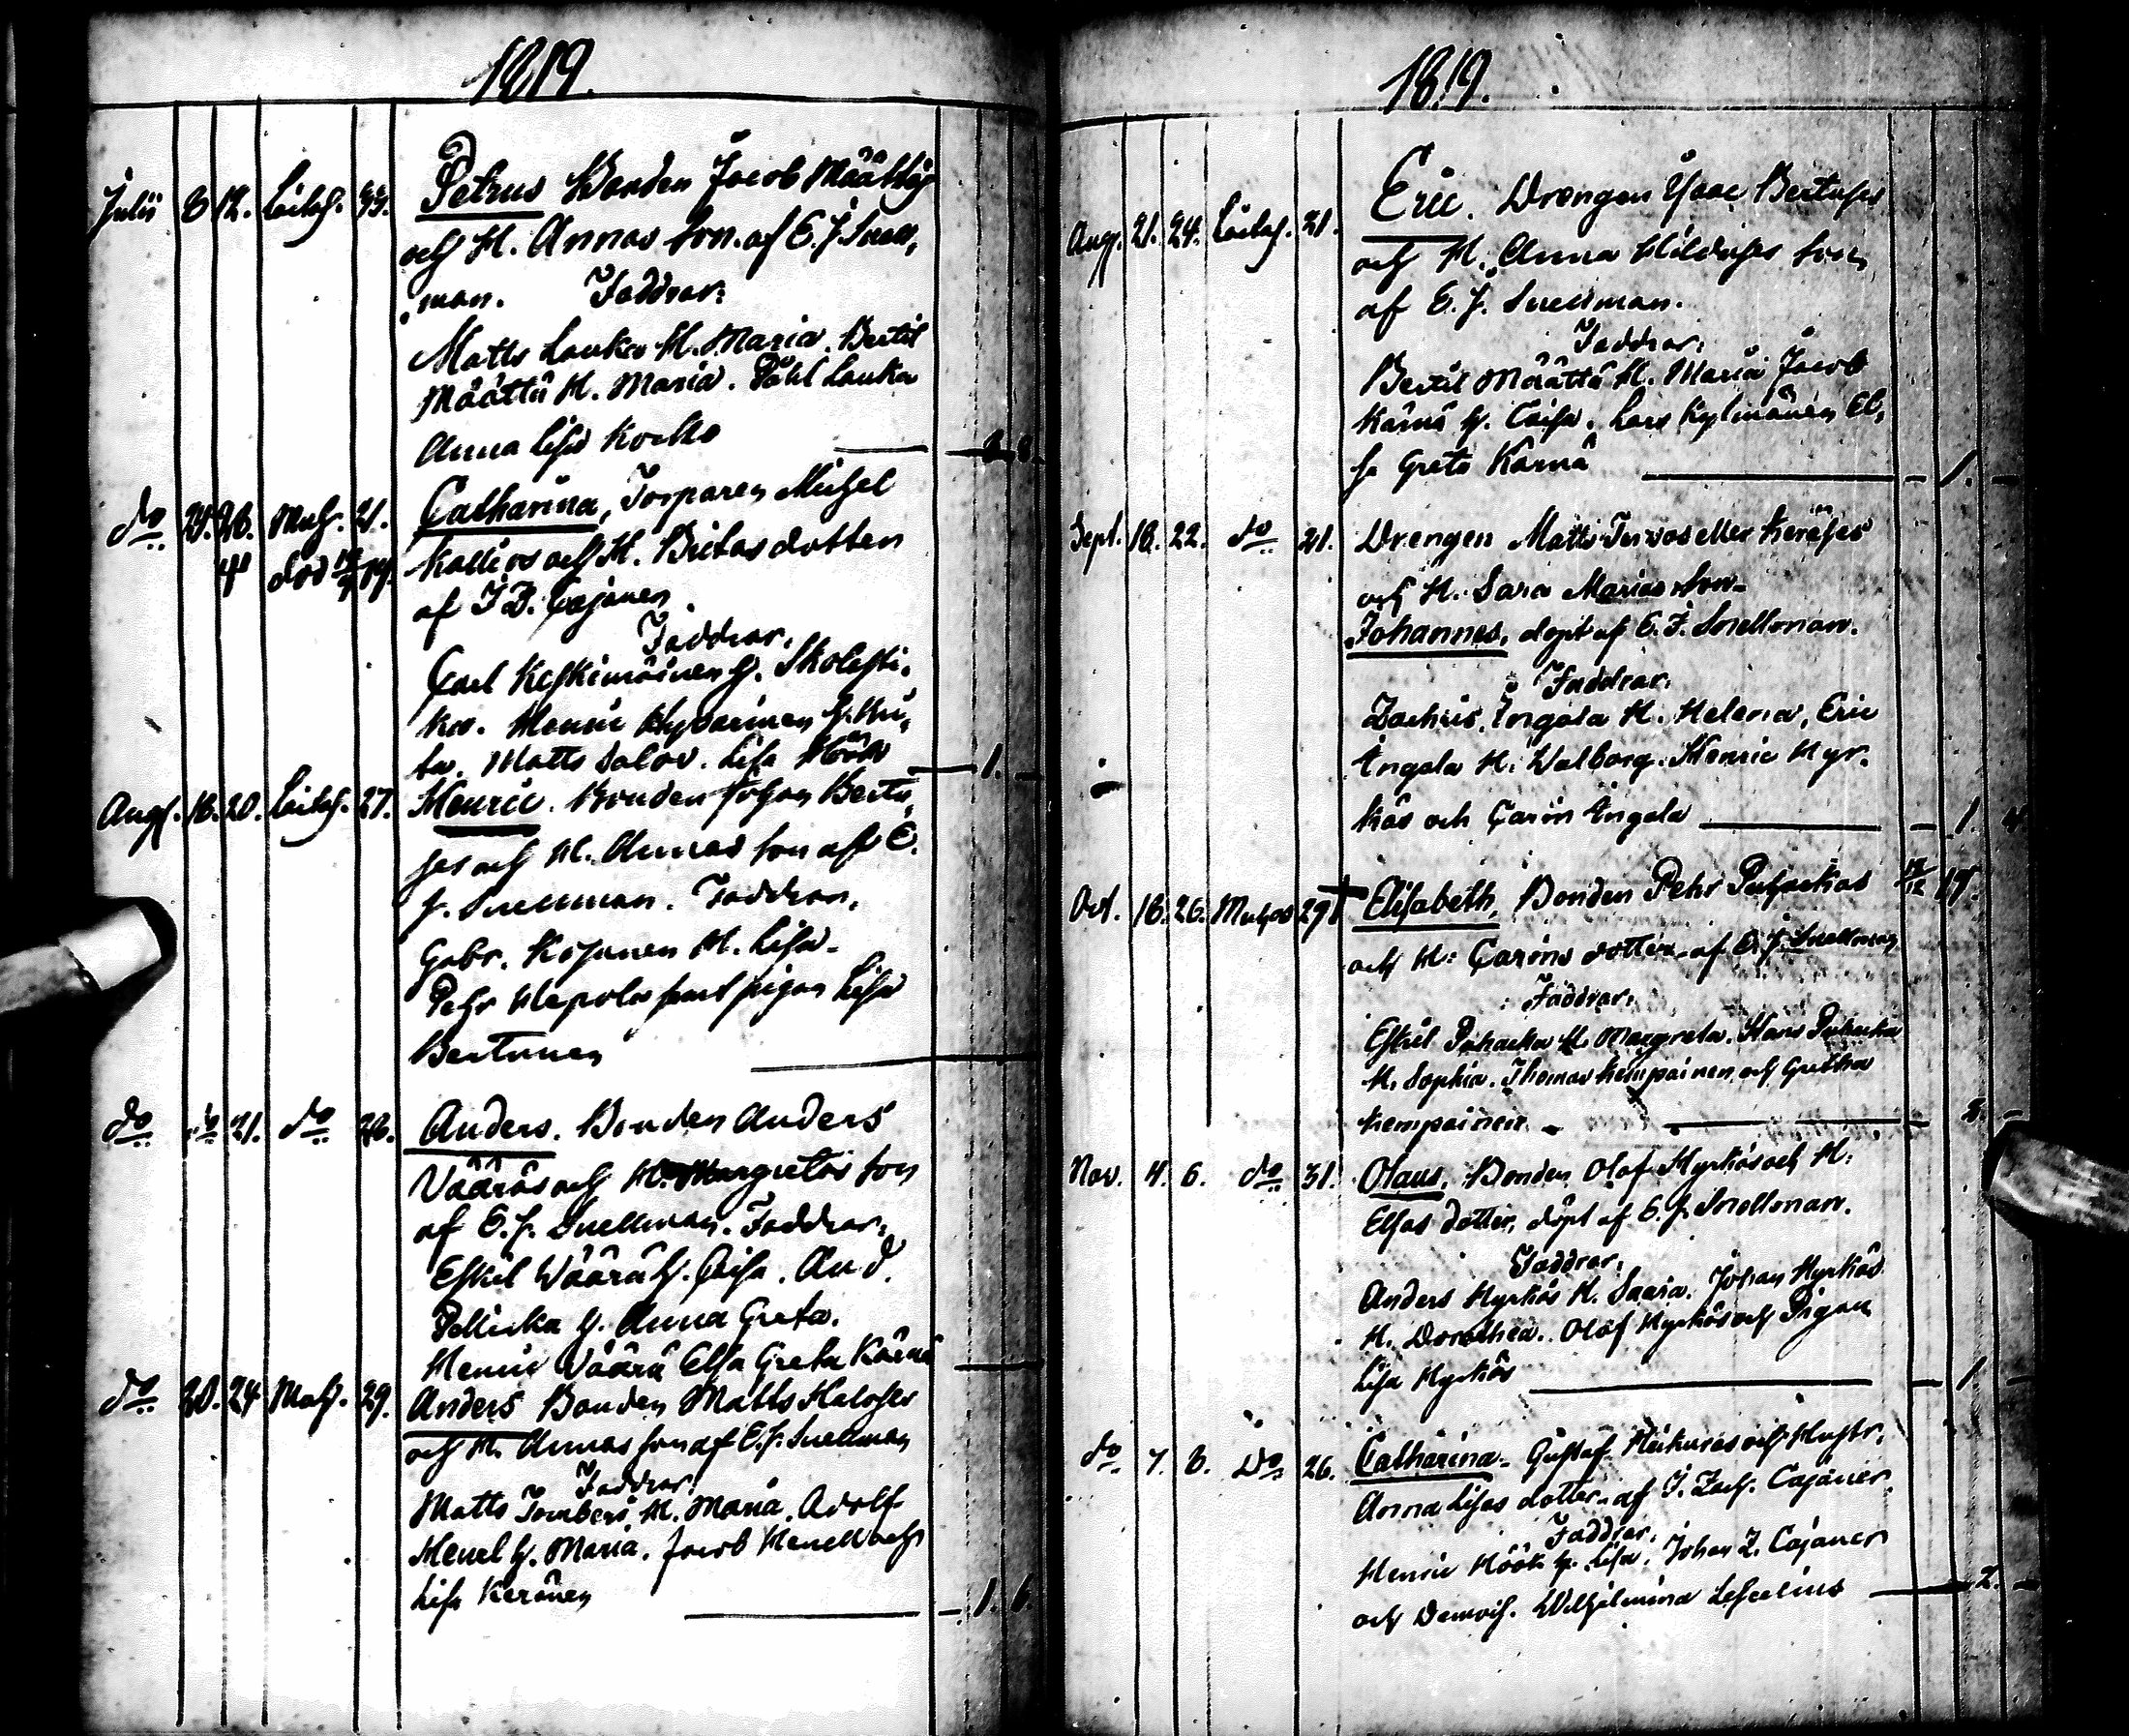 1819.
Julii 8 12. Laitas. 33. Petrus Bonden Jacob Määttas
och H. Annas Son. af E. J. Snell,
man. Faddrar:
Matts Lauka H. Maria. Bertil
Määttä H. Maria. Påhl Lauka
Anna Lisa
do 24. 26. Muh. 21. Catharina, Torparen Michel
död 19 Kallios och H. Britas dotter
af J Z. Cajanen
Faddrar.
Carl Keskimäinen H. Skolasti,
ka. Henric Hyvarinen H. Bri,
ta. Matts Salov. Lisa Höök 1. -
Augs. 16. 20. Laitas. 27. Henric. Bonden Johan Bertu,
ses och H. Annas son af E.
J. Snellman. Faddrar.
Gabr. Kojanen H. Lisa.
Pehr Hepola samt pigan Lisa
Bertunen
do do 21. do 26. Anders. Bonden Anders
Vääräs och H. Margretas son
af E. J. Snellman. Faddrar.
Eskil Wäärä H. Caisa. And.
Pellicka H. Anna Greta.
Henric Väärä Elsa Greta Kärnä
do 20. 24 Muh. 29. Anders Bonden Matts Haloses
och H. Annas son af E. J. Snellman
Faddrar.
Matts Tomberi H. Maria. Adolf
Henel H. Maria. Jacob Henell och
Lisa Keränen - 1. 6
1819.
Aug. 21. 24. Laitas. 21. Eric. Drengen Isaac Bertuses
och H. Anna Hildas Son
af E. J. Snellman.
Faddrar.
Bertil Määttä H. Maria Jacob
Kärnä H. Caisa. Lars Kylmänen El,
sa Greta Kärnä - 1. -
Sept. 18. 22. do 21. Drengen Matts Tervos eller Keräses
och H. Sara Marias Son
Johannes, döpt af E. J. Snellman.
Faddrar.
Zachris Ängala H. Helena, Eric
Ängala H. Walborg. Henric Hyr,
käs och Carin Ängala - 1. 4
Oct. 18. 26. Muhos 29 † Elisabeth, Bonden Pehr Puhackas 19.
och H: Carins dotter af E. J. Snellman
Faddrar.
Eskil Puhacka H. Margreta. Hans Puhacka
H. Sophia. Thomas Kempainen och Gretha
Kempainen
Nov. 4. 6. do 31. Olaus, Bonden Olof Hyrkäs och H:
Elsas dotter, döpt af E. J. Snellman.
Faddrar.
Anders Hyrkäs H. Saara. Johan Hyrkäs
H. Dorothea. Olof Hyrkäs och Pigan
Lisa Hyrkäs - 1. -
do 7. 8. Do 26. Catharina. Gustaf Heikuras och Hustr.
Anna Lisas dotter. af J. Zach. Cajaner
Faddrar.
Henric Höök H. Lisa. Johan Z. Cajaner
och Demois. Wilhelmina 2. -